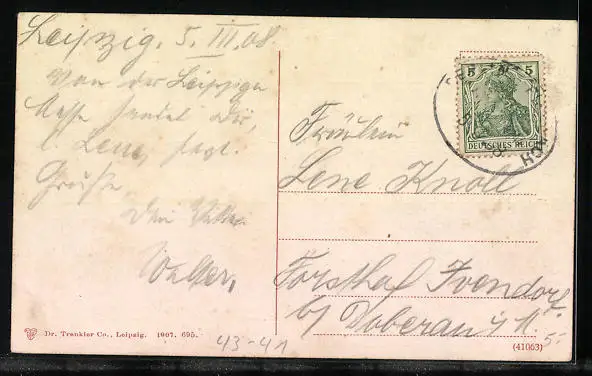 Leipzig, 5. III. 08.
Von der Leipziger
Messe sendet Dir,
l. Lene, hrzl.
Grüße
Dein Vetter
Walter.
5 5
DEUTSCHES REICH
Fräulein
Lene Knoll
Forsthof Ivendorf
b/ Doberan i/ M.
5.-
Dr. Trenkler Co., Leipzig. 1907. 695.
43-41
(41063)